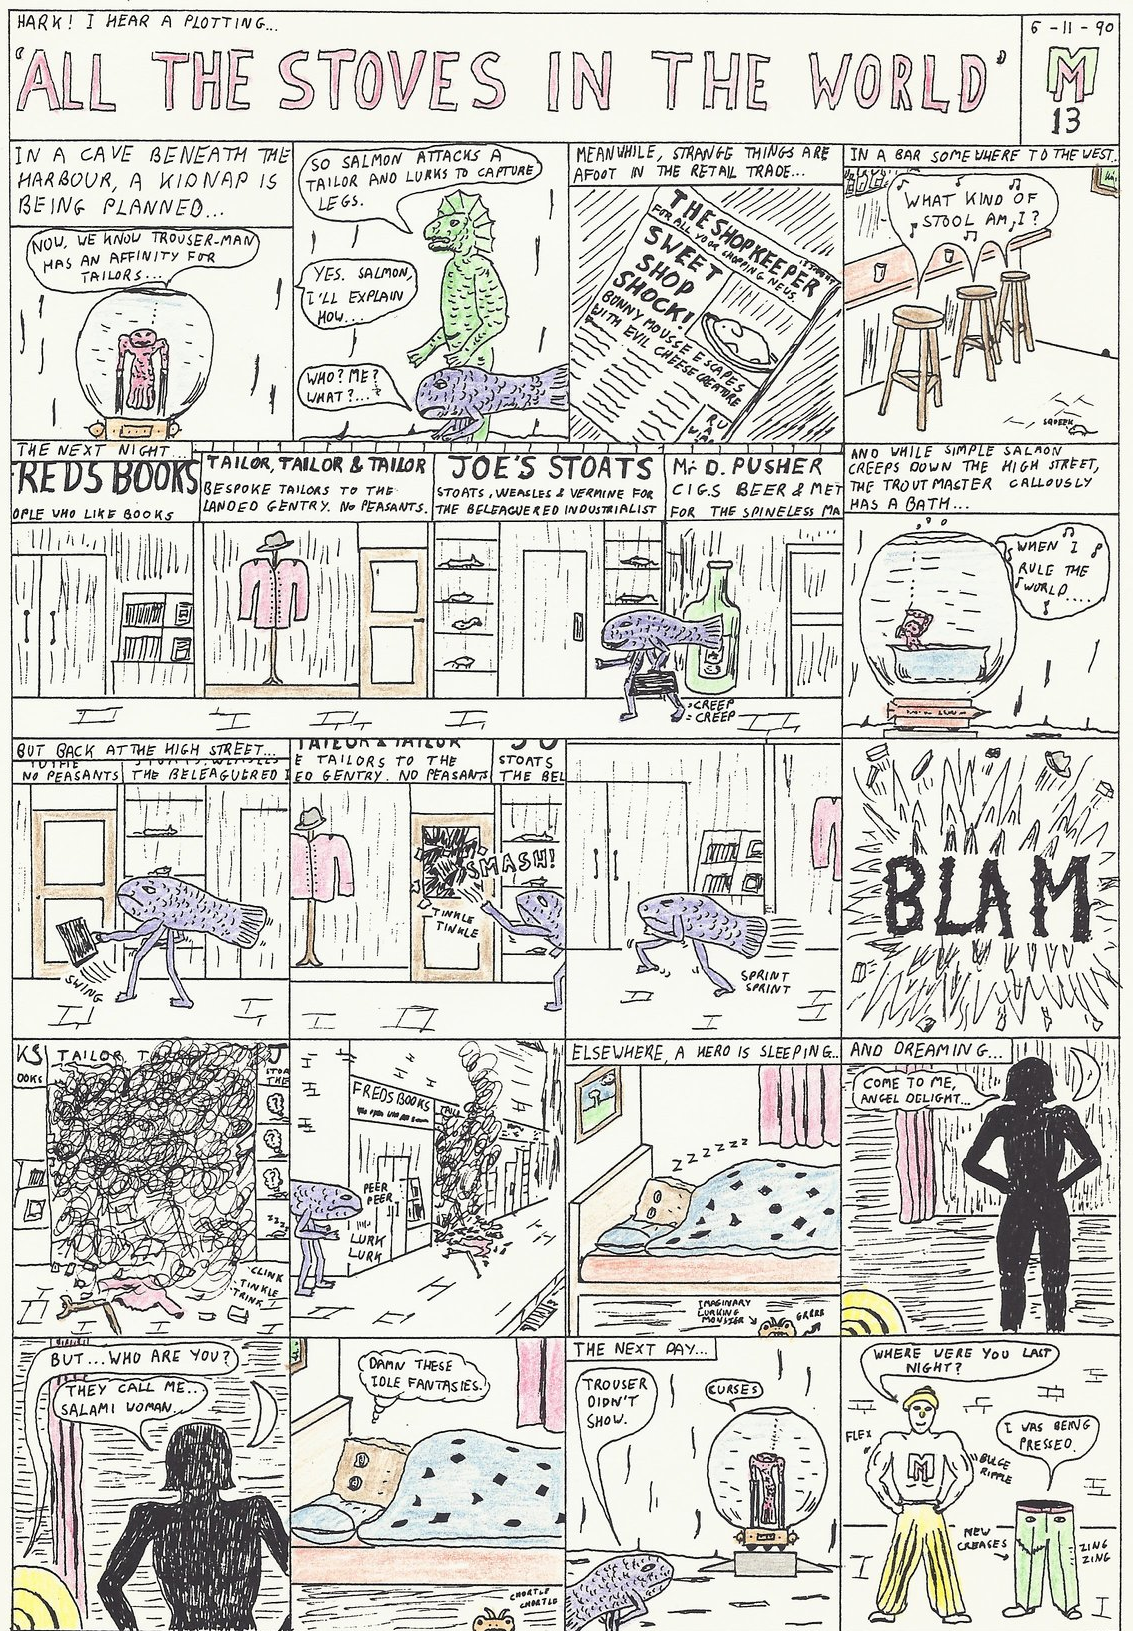 HARK! I HEAR A PLOTTING...
'ALL THE STOVES IN THE WORLD'
6-11-90
M
13
IN A CAVE BENEATH THE
HARBOUR, A KIDNAP IS
BEING PLANNED...
NOW, WE KNOW TROUSER-MAN
HAS AN AFFINITY FOR
TAILORS...
SO SALMON ATTACKS A
TAILOR AND LURKS TO CAPTURE
LEGS.
YES. SALMON,
I'LL EXPLAIN
HOW...
WHO? ME?
WHAT?...?
MEANWHILE, STRANGE THINGS ARE
AFOOT IN THE RETAIL TRADE...
THE SHOPKEEPER
FOR ALL YOUR SHOPPING NEWS.
SWEET
SHOP
SHOCK!
BUNNY MOUSSE ESCAPES
WITH EVIL CHEESE CREATURE
IN A BAR SOMEWHERE TO THE WEST..
WHAT KIND OF
STOOL AM I?
SQUEEK
THE NEXT NIGHT...
FREDS BOOKS
OPLE WHO LIKE BOOKS
TAILOR, TAILOR & TAILOR
BESPOKE TAILORS TO THE
LANDED GENTRY. NO PEASANTS.
JOE'S STOATS
STOATS, WEASLES & VERMINE FOR
THE BELEAGUERED INDUSTRIALIST
Mr D. PUSHER
CIGS BEER & MET
FOR THE SPINELESS MA
CREEP
CREEP
AND WHILE SIMPLE SALMON
CREEPS DOWN THE HIGH STREET,
THE TROUTMASTER CALLOUSLY
HAS A BATH...
WHEN I
RULE THE
WORLD....
BUT BACK AT THE HIGH STREET...
TO THE
NO PEASANTS
STOATS, WEASLES
THE BELEAGUERED I
SWING
TAILOR & TAILOR
E TAILORS TO THE
ED GENTRY. NO PEASANTS
JO
STOATS
THE BEL
SMASH!
TINKLE
TINKLE
SPRINT
SPRINT
BLAM
KS
OOKS
TAILOR TA
J
STOA
THE
CLINK
TINKLE
TRINK
FREDS BOOKS
PEER
PEER
LURK
LURK
ELSEWHERE, A HERO IS SLEEPING..
ZZZZZZZ
IMAGINARY
LURKING
MONSTER
GRRRR
AND DREAMING...
COME TO ME,
ANGEL DELIGHT...
BUT...WHO ARE YOU?
THEY CALL ME..
SALAMI WOMAN..
DAMN THESE
IDLE FANTASIES.
CHORTLE
CHORTLE
THE NEXT DAY...
TROUSER
DIDN'T
SHOW.
CURSES
WHERE WERE YOU LAST
NIGHT?
FLEX
M
BULGE
RIPPLE
I WAS BEING
PRESSED.
NEW
CREASES
ZING
ZING